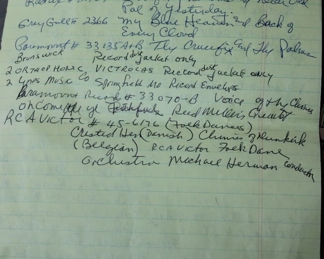 Pal of Yesterday.
Grey Gull # 2366 My Blue Heaven and Back of
Every Cloud
Paramount # 33135 A+B The Crucifix and The Palms
Brunswick Record Jacket only
2 ORTHOPHONIC VICTROLAS Record Jacket only
2 Lyric Music Co Springfield Mo Record Envelopes
Paramount Record # 33070-B Voice of the Chimes
Reed Miller's Quartet
RCA Victor # 45-6176 (Folk Dances)
Crested Hen (Danish) Chimes of Dunkirk
(Belgian) RCA Victor Folk Dance
Orchestra Michael Herman Conductor